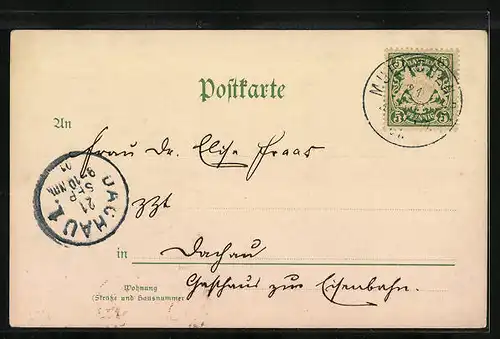 Postkarte
BAYERN
5 5
PFENNIG
An
Frau Dr. Elise Fraas
zzt
DACHAU 1.
21
SEP
9-10 NM
in Dachau
Gasthaus zur Eisenbahn.
Wohnung
(Straße und Hausnummer)